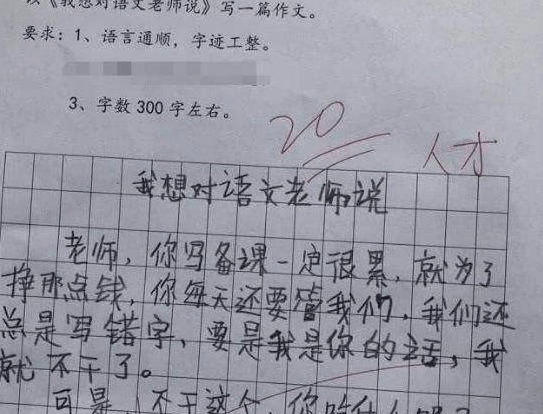 以《我想对语文老师说》写一篇作文。
要求：1、语言通顺，字迹工整。
3、字数 300 字左右。
20
人才
我想对语文老师说
老师，你写备课一定很累，就为了
挣那点钱，你每天还要管我们，我们还
总是写错字，要是我是你的话，我
就不干了。
可是，不干这个，你